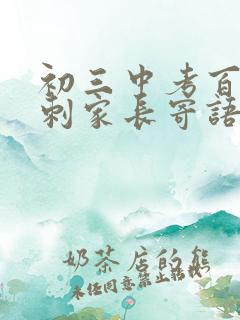 初三中考百
刺家长寄语
奶茶店的熊
未经同意禁止转载